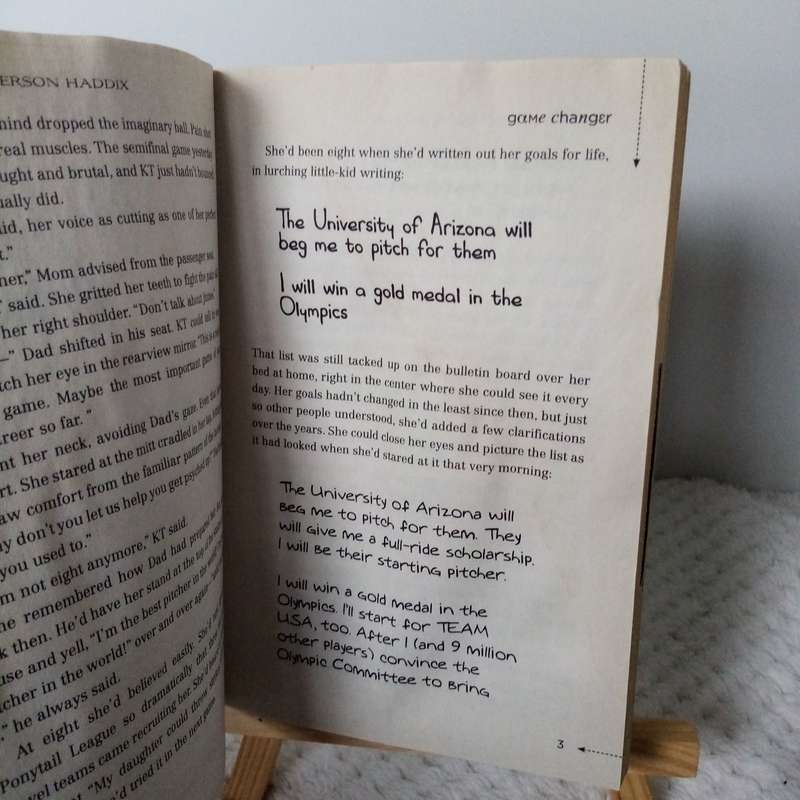 ERSON HADDIX
mind dropped the imaginary ball. Pain
real muscles. The semifinal game yesterday
ught and brutal, and KT just hadn't
ually did.
aid, her voice as cutting as one of her perfect
t."
ner," Mom advised from the passenger seat.
said. She gritted her teeth to fight the
her right shoulder. "Don't talk about
—" Dad shifted in his seat. KT could
tch her eye in the rearview mirror. "This is
game. Maybe the most important game of
reer so far."
nt her neck, avoiding Dad's gaze. Even
rt. She stared at the mitt cradled in her lap,
aw comfort from the familiar pattern of the
y don't you let us help you get psyched up?"
you used to."
m not eight anymore," KT said.
he remembered how Dad had
k then. He'd have her stand at the top of the
use and yell, "I'm the best pitcher in the world!
tcher in the world!" over and over again.
" he always said.
At eight she'd believed easily. She'd
Ponytail League so dramatically that
vel teams came recruiting her. She'd
"My daughter could throw
'd tried it in the next game
game changer
She'd been eight when she'd written out her goals for life,
in lurching little-kid writing:
The University of Arizona will
beg me to pitch for them
I will win a gold medal in the
Olympics
That list was still tacked up on the bulletin board over her
bed at home, right in the center where she could see it every
day. Her goals hadn't changed in the least since then, but just
so other people understood, she'd added a few clarifications
over the years. She could close her eyes and picture the list as
it had looked when she'd stared at it that very morning:
The University of Arizona will
beg me to pitch for them. They
will give me a full-ride scholarship.
I will be their starting pitcher.
I will win a gold medal in the
Olympics. I'll start for TEAM
USA, too. After I (and 9 million
other players) convince the
Olympic Committee to bring
3